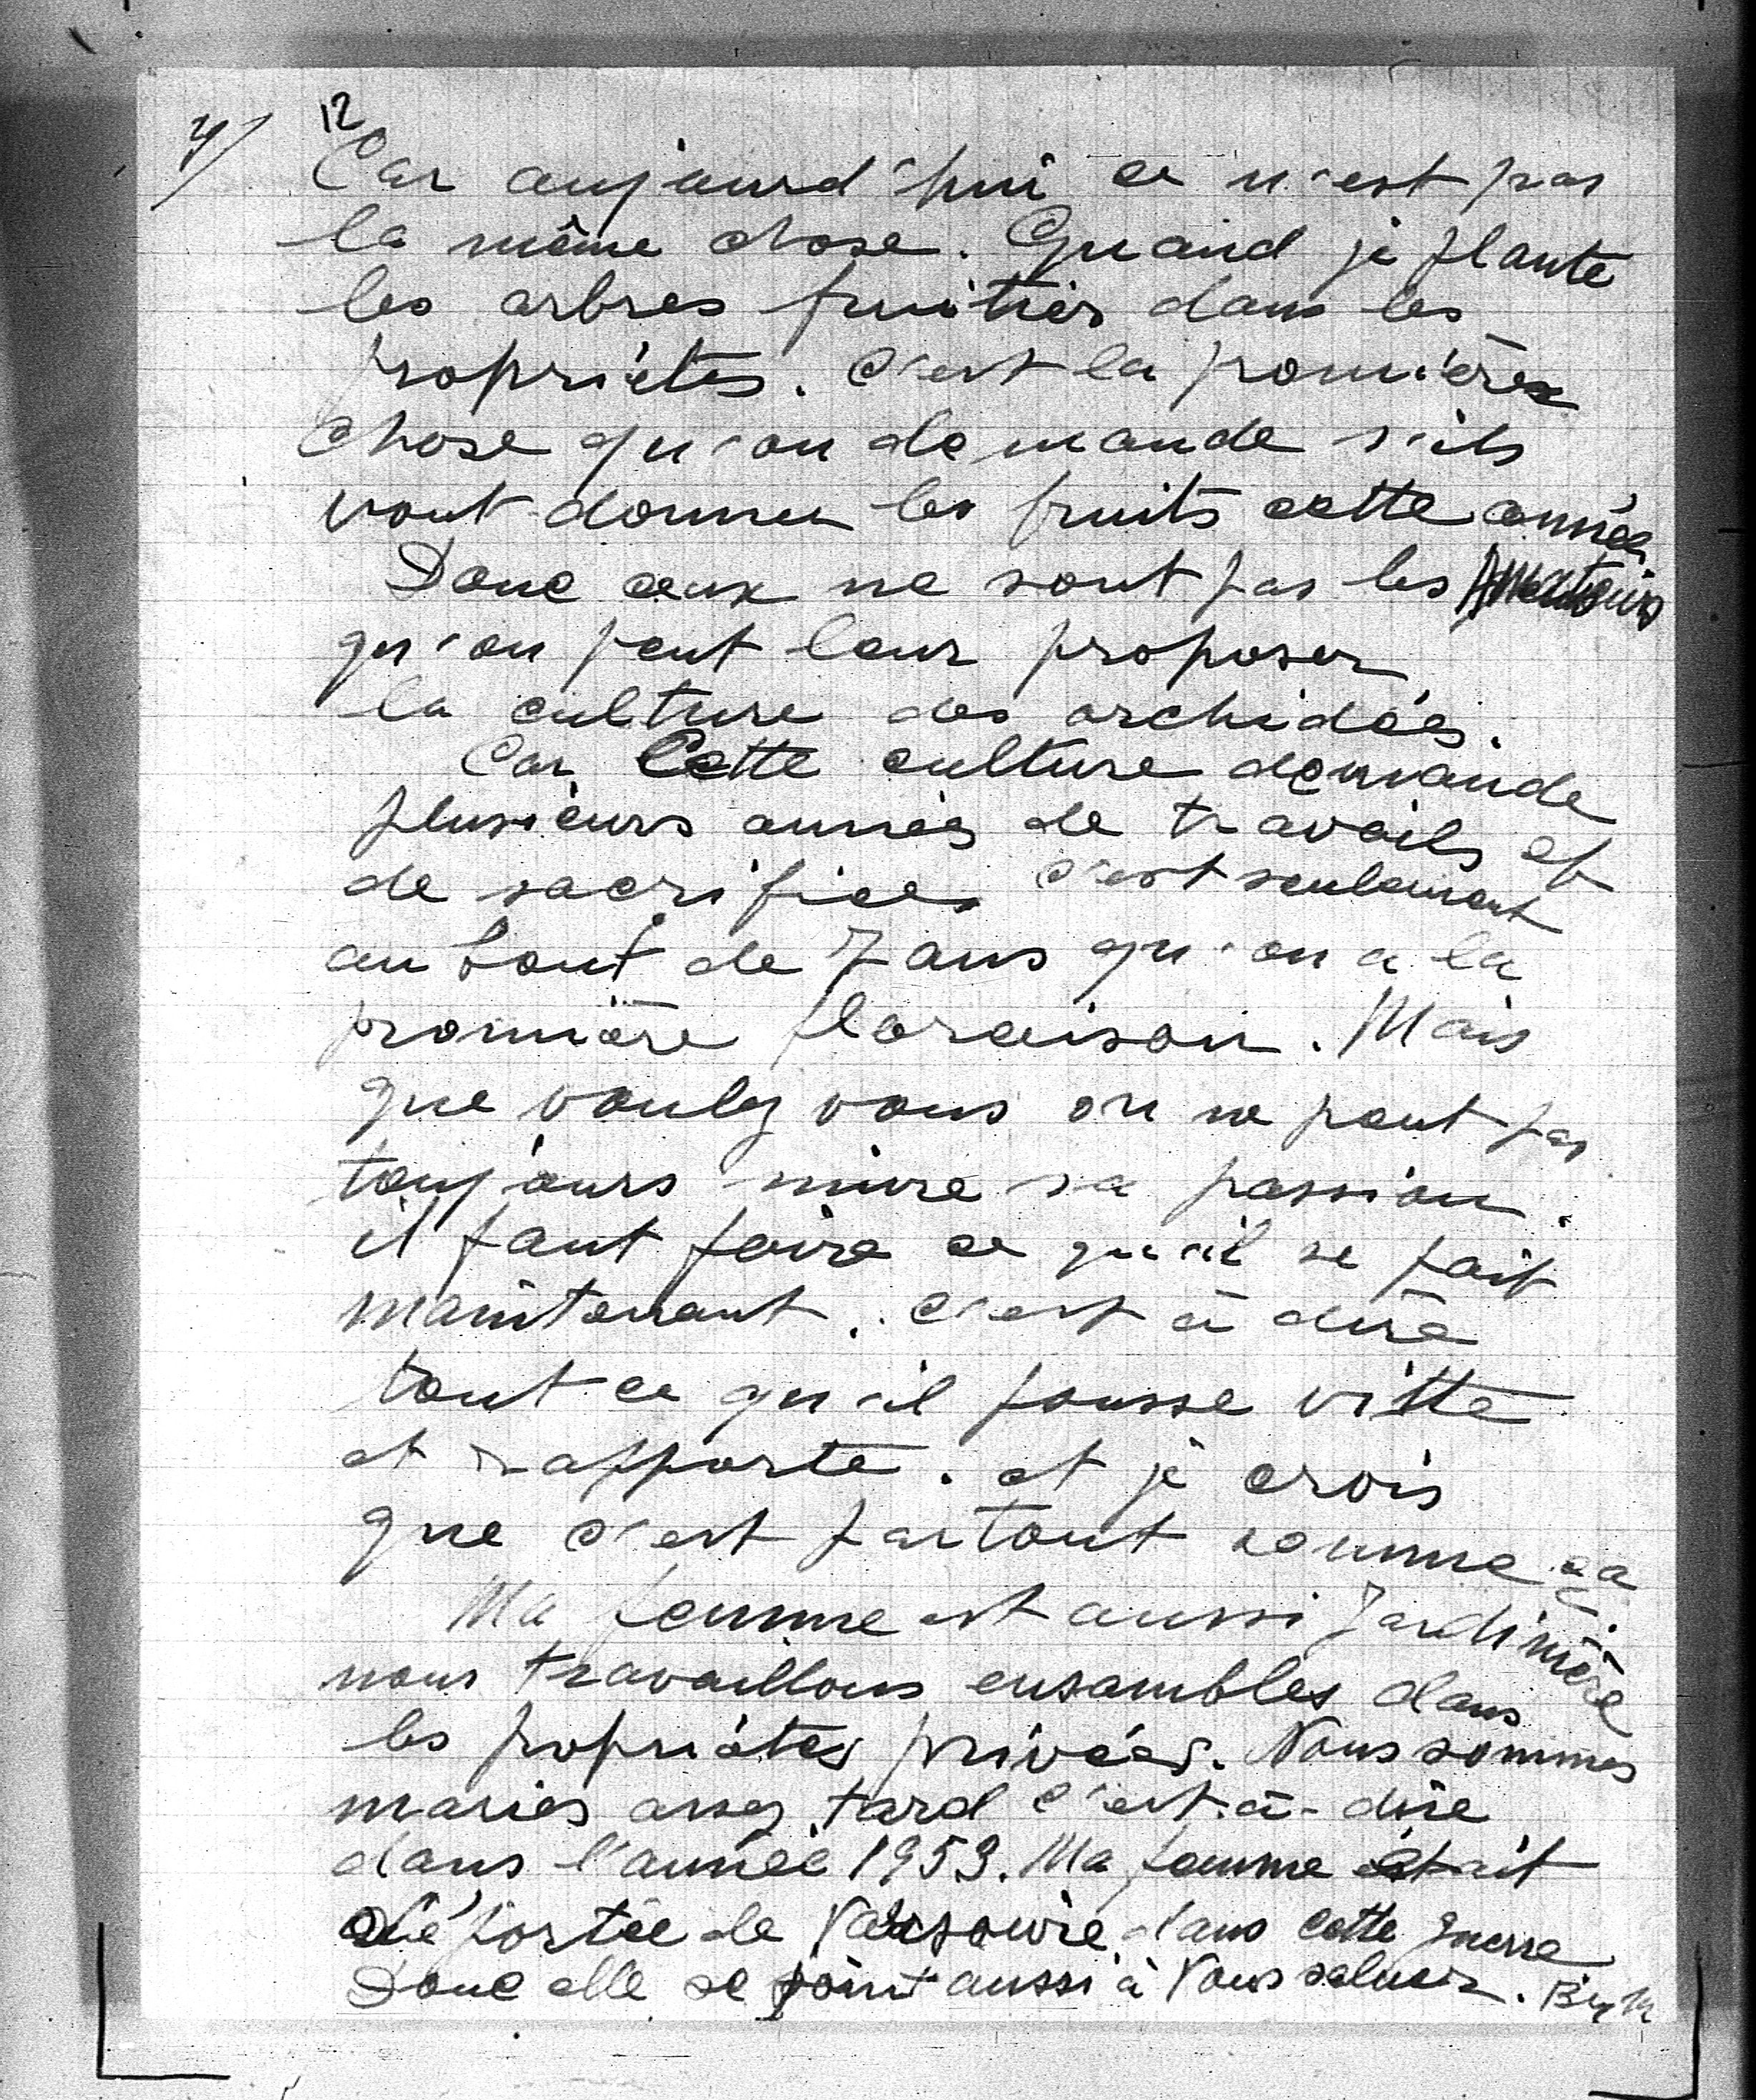 12
4/
Car aujourd'hui ce n'est pas
la même chose. Quand je plante
les arbres fruitiers dans les
propriétés. C'est la promière
chose qu'on demande s'ils
vont donner les fruits cette année
Donc ceux ne sont pas les Amateurs
qu'on peut leur proposer
la culture des orchidées.
Car Cette culture demande
plusieurs années de travails et
de sacrifices c'est seulement
au bout de 7 ans qu'on a la
promière floraison. Mais
que voulez vous on ne peut pas
toujours suivre sa passion.
il faut faire ce qu'il se fait
maintenant. c'est à dire
tout ce qu'il pousse vitte
et rapporte. et je crois
que c'est partout comme ça.
Ma femme est aussi Jardinière
nous travaillons ensembles dans
les propriétés privées. Nous sommes
mariés assez tard c'est-à-dire
dans l'année 1959. Ma femme était
déportée de Varsovie dans cette guerre
Donc elle se joint aussi à Vous saluer.